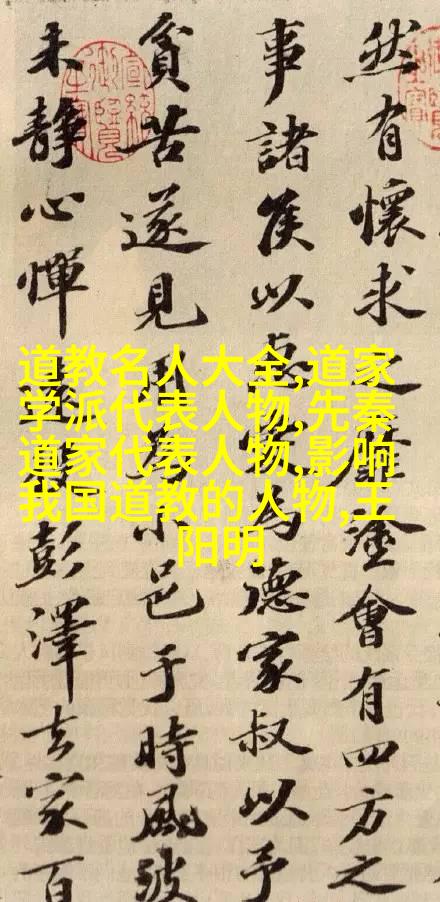 然有懷求之塗會有四方之
事諸侯以惠為德家叔以予
貧苦遂見用為小邑于時風波
未静心憚彭澤去家百
道教名人大全,道家
学派代表人物,先秦
道家代表人物,影响
我国道教的人物,王
阳明